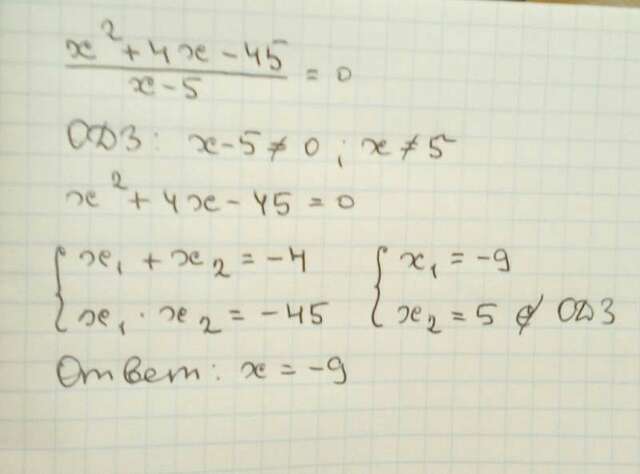 x² + 4x - 45 / x - 5 = 0
ОДЗ: x - 5 ≠ 0; x ≠ 5
x² + 4x - 45 = 0
{ x₁ + x₂ = -4 { x₁ = -9
{ x₁ · x₂ = -45 { x₂ = 5 ∉ ОДЗ
Ответ: x = -9